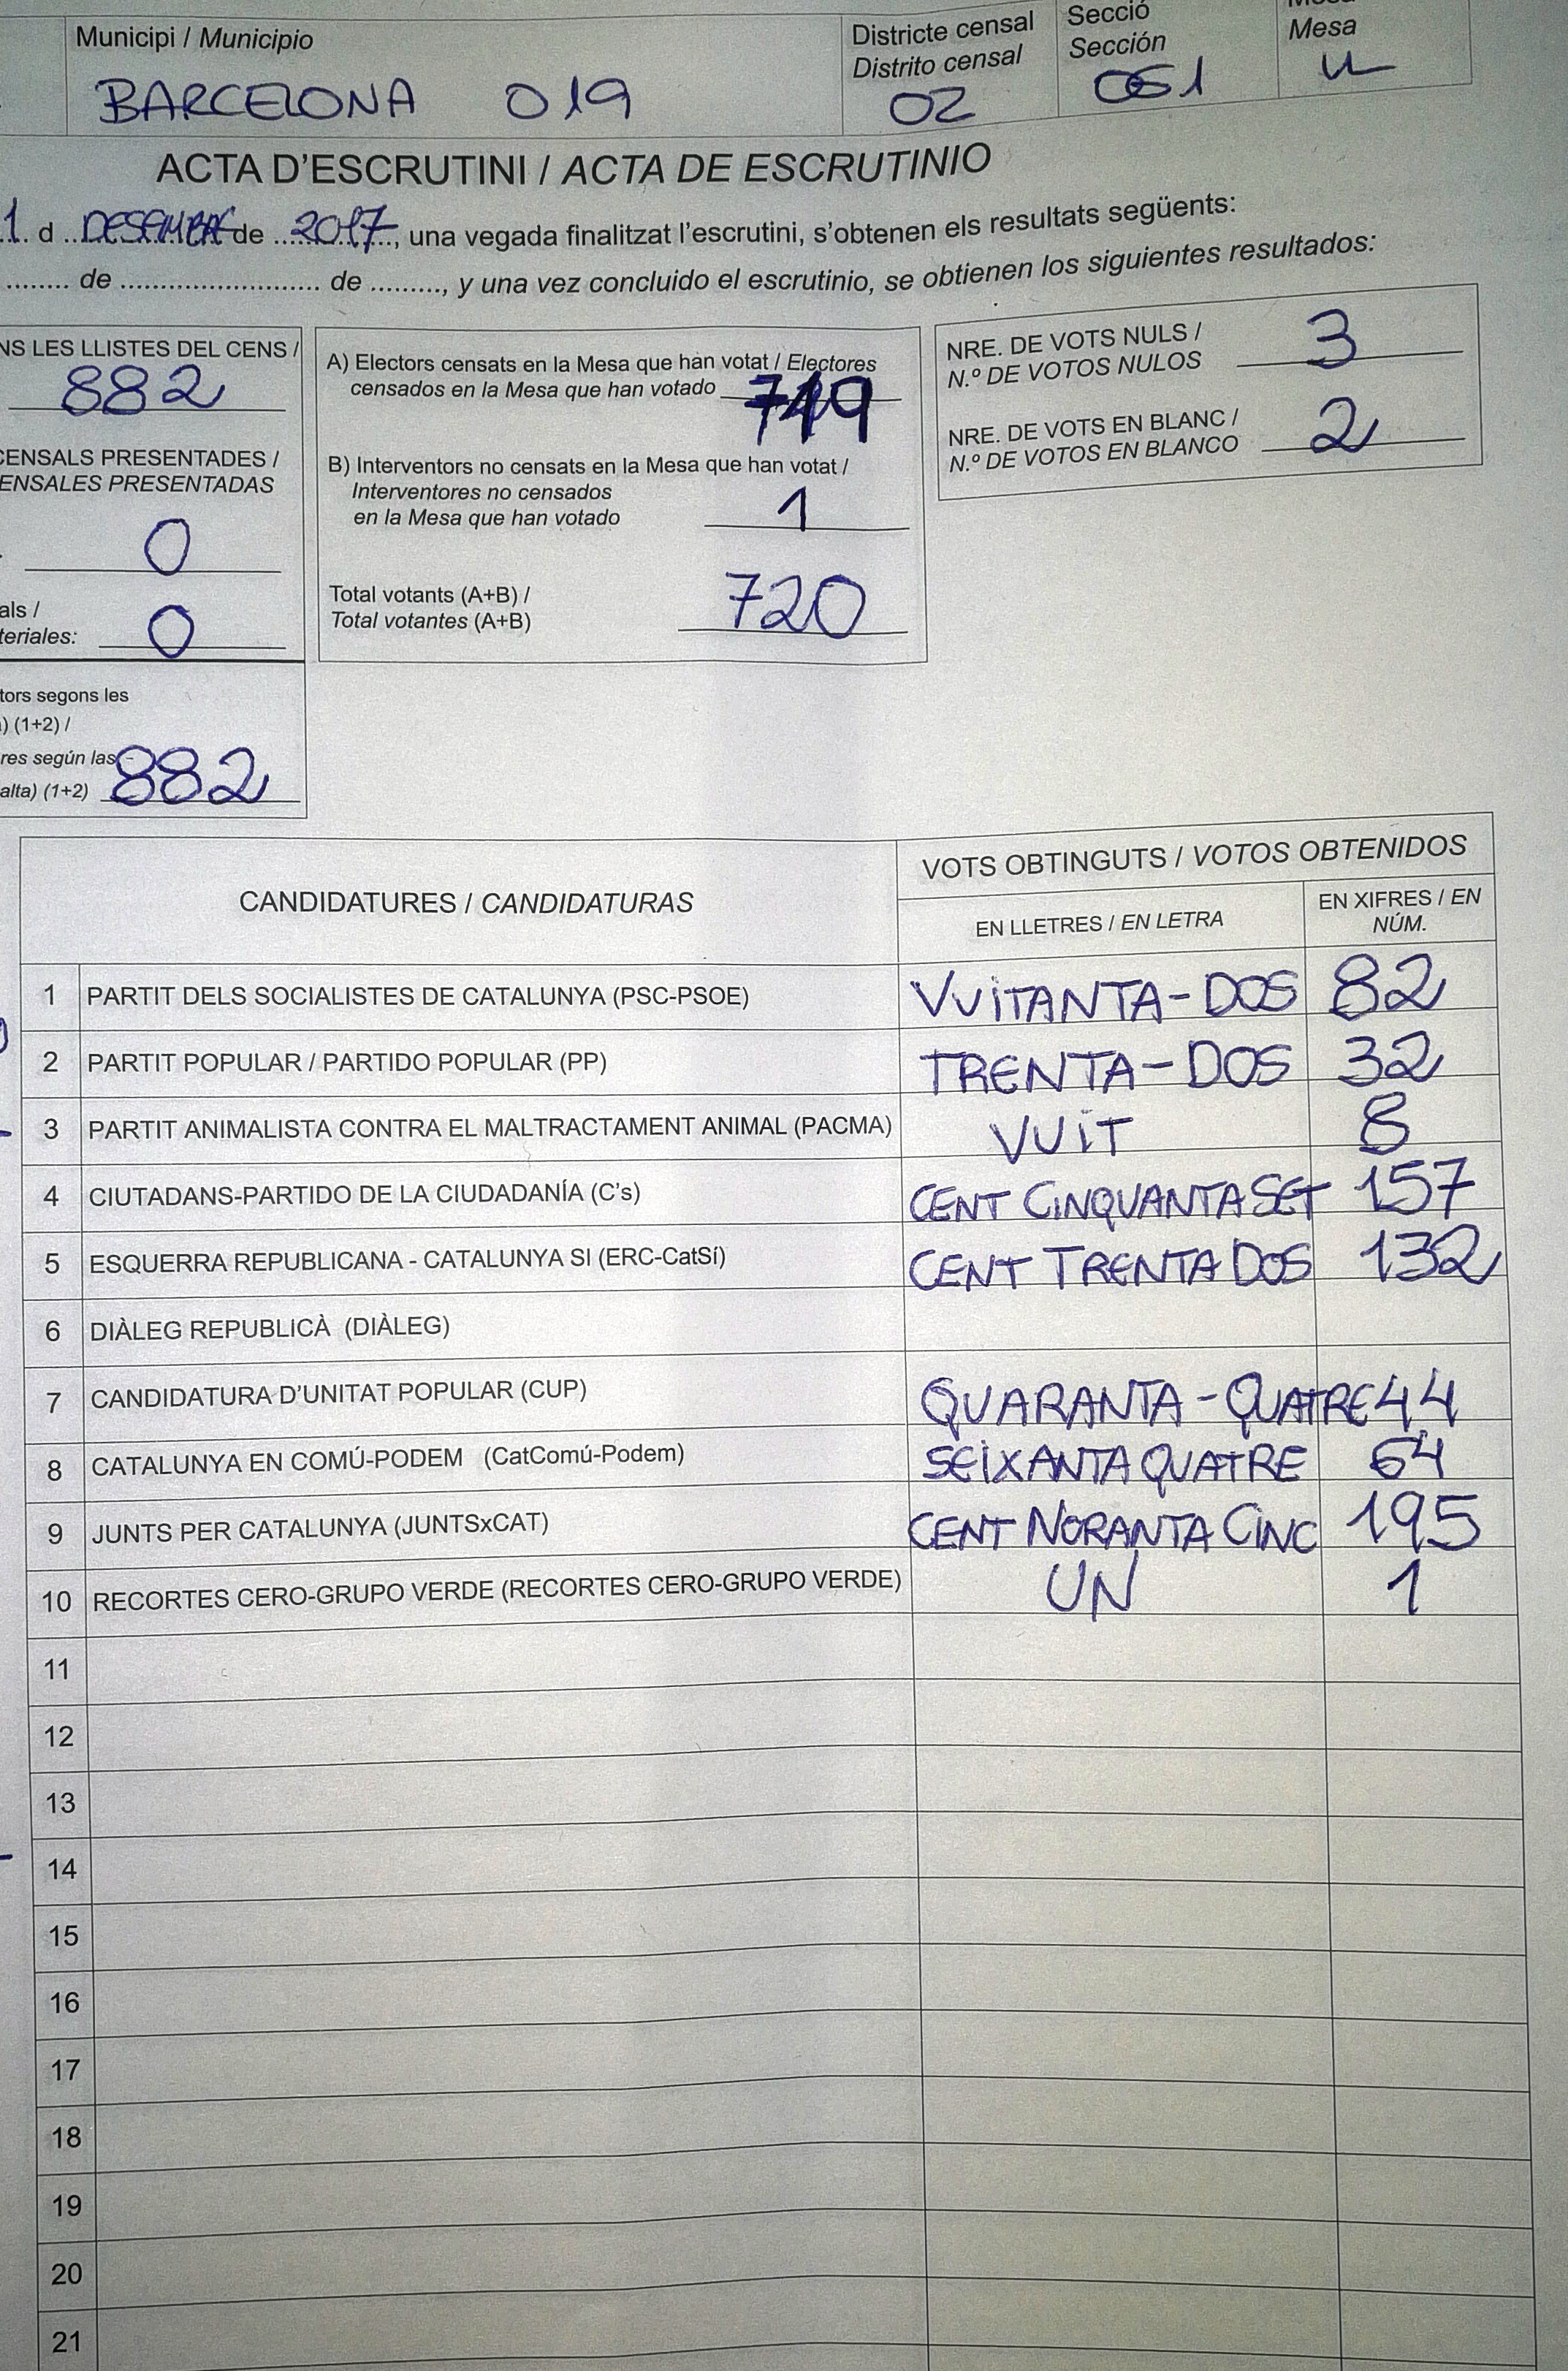 Municipi / Municipio
BARCELONA 019
Districte censal
Distrito censal
02
Secció
Sección
061
Mesa
U
ACTA D'ESCRUTINI / ACTA DE ESCRUTINIO
1. d DESEMBRE de 2017, una vegada finalitzat l'escrutini, s'obtenen els resultats següents:
........ de ........................... de ........., y una vez concluido el escrutinio, se obtienen los siguientes resultados:
NS LES LLISTES DEL CENS /
882
CENSALS PRESENTADES /
ENSALES PRESENTADAS
0
als /
teriales: 0
tors segons les
) (1+2) /
res según las
alta) (1+2) 882
A) Electors censats en la Mesa que han votat / Electores
censados en la Mesa que han votado 719
B) Interventors no censats en la Mesa que han votat /
Interventores no censados
en la Mesa que han votado 1
Total votants (A+B) /
Total votantes (A+B) 720
NRE. DE VOTS NULS /
N.º DE VOTOS NULOS 3
NRE. DE VOTS EN BLANC /
N.º DE VOTOS EN BLANCO 2
CANDIDATURES / CANDIDATURAS
VOTS OBTINGUTS / VOTOS OBTENIDOS
EN LLETRES / EN LETRA
EN XIFRES / EN
NÚM.
1 PARTIT DELS SOCIALISTES DE CATALUNYA (PSC-PSOE) VUITANTA-DOS 82
2 PARTIT POPULAR / PARTIDO POPULAR (PP) TRENTA-DOS 32
3 PARTIT ANIMALISTA CONTRA EL MALTRACTAMENT ANIMAL (PACMA) VUIT 8
4 CIUTADANS-PARTIDO DE LA CIUDADANÍA (C's) CENT CINQUANTA SET 157
5 ESQUERRA REPUBLICANA - CATALUNYA SI (ERC-CatSí) CENT TRENTA DOS 132
6 DIÀLEG REPUBLICÀ (DIÀLEG)
7 CANDIDATURA D'UNITAT POPULAR (CUP) QUARANTA-QUATRE 44
8 CATALUNYA EN COMÚ-PODEM (CatComú-Podem) SEIXANTA QUATRE 64
9 JUNTS PER CATALUNYA (JUNTSxCAT) CENT NORANTA CINC 195
10 RECORTES CERO-GRUPO VERDE (RECORTES CERO-GRUPO VERDE) UN 1
11
12
13
14
15
16
17
18
19
20
21